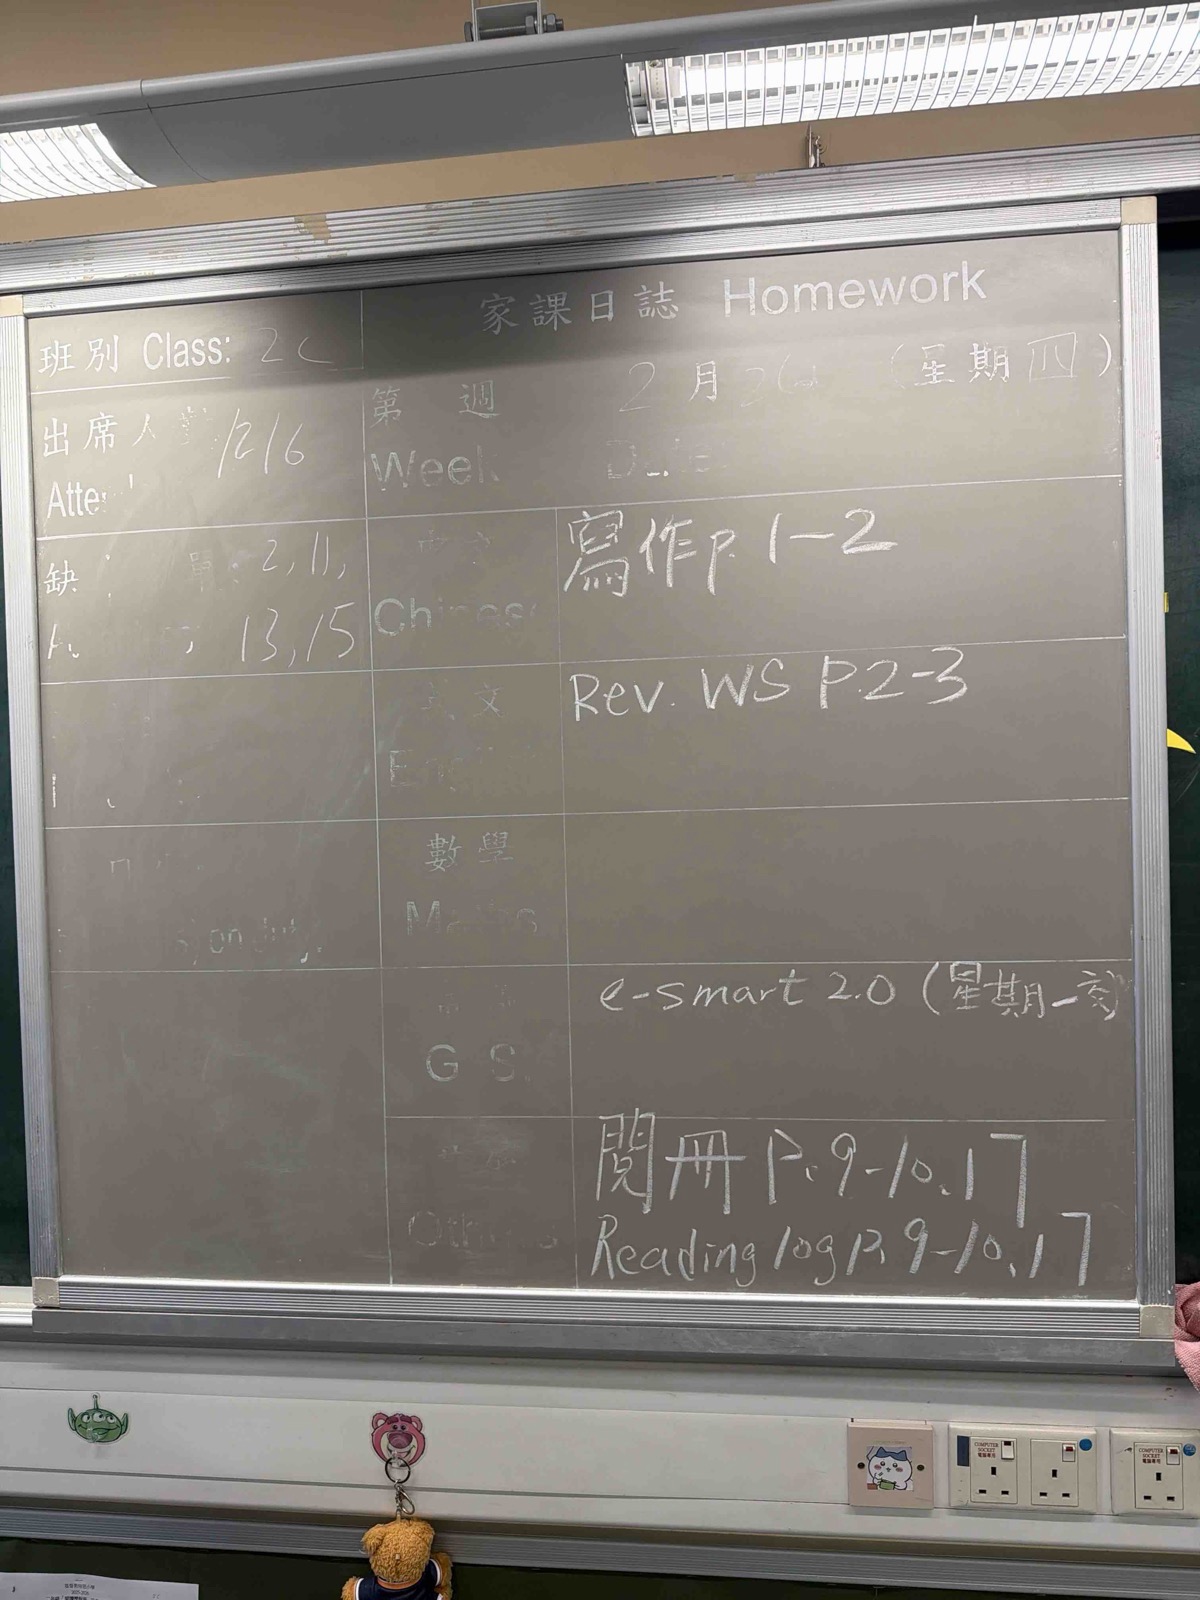 家課日誌 Homework
班別 Class: 2C
2月 (星期四)
第 週
出席人數
Week
Date
缺 2, 11,
13, 15
寫作p. 1-2
Chinese
文
Rev. WS P.2-3
數學
Maths
e-smart 2.0 (星期一交)
G.S.
閱冊 P. 9-10, 17
Others
Reading log P. 9-10, 17
COMPUTER
SOCKET
電腦專用
COMPUTER
SOCKET
電腦專用